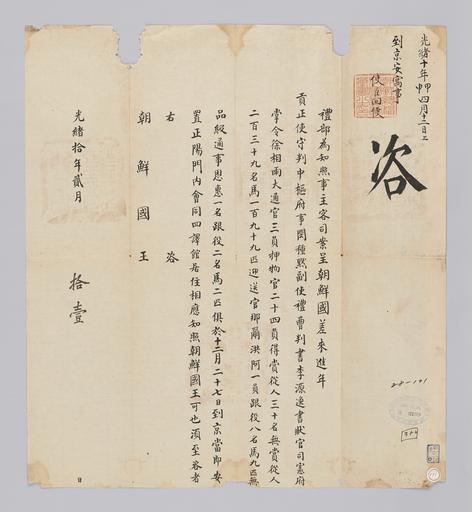 光緒十年甲申四月十二日上
到京安寓事
使臣回便
咨
禮部爲知照事主客司案呈朝鮮國差來進年
貢正使守判中樞府事閔種默副使禮曹判書李源逸書狀官司憲府
掌令徐相雨大通官三員押物官二十四員得賞從人三十名無賞從人
二百三十九名馬一百九十九匹迎送官那爾洪阿一員跟役八名馬九匹無
品級通事恩惠一名跟役二名馬二匹俱於十二月二十七日到京當卽安
置正陽門內會同四譯館居住相應知照朝鮮國王可也須至咨者
右咨
朝鮮國王
光緒拾年貳月
拾壹
日